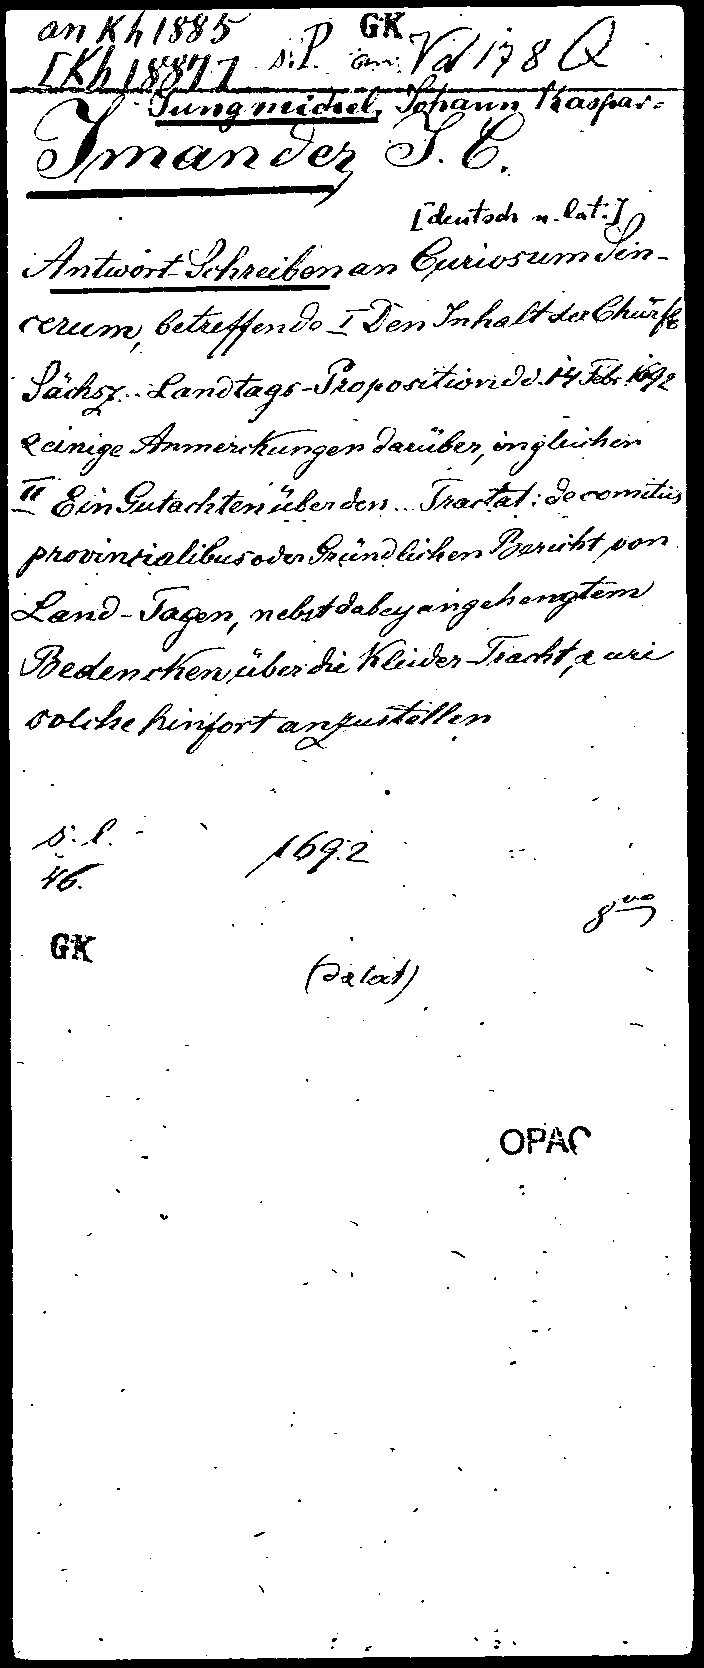 an Kh 1885 s. P. GK an Vd 178 Q
[Kh 1887]
Jungmichel, Johann Kaspar=
Imander, J. C.
[deutsch u. lat.]
Antwort-Schreiben an Curiosum Sin-
cerum, betreffende I Den Inhalt der Churfl.
Sächsz... Landtags-Proposition de d. 14 Febr. 1692
& einige Anmerckungen darüber, ingleichen
II Ein Gutachten über den... Tractat: de comitiis
provincialibus oder Gründlichen Bericht von
Land-Tagen, nebst dabey angehengtem
Bedencken über die Kleider-Tracht, & wie
solche hinfort anzustellen
s. l. 1692
46.
8vo
GK
(dalat)
OPAC